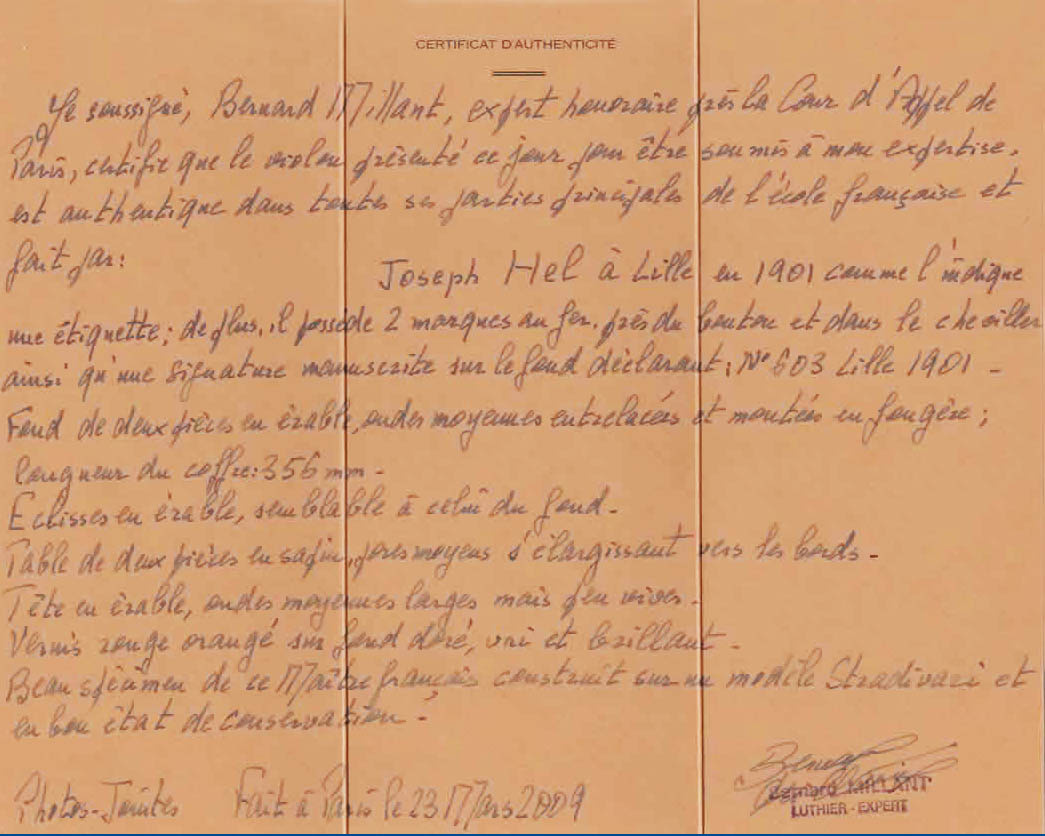 CERTIFICAT D'AUTHENTICITÉ
Je soussigné, Bernard Millant, expert honoraire près la Cour d'Appel de
Paris, certifie que le violon présenté ce jour pour être soumis à mon expertise,
est authentique dans toutes ses parties principales de l'école française et
fait par:
Joseph Hel à Lille en 1901 comme l'indique
une étiquette; de plus, il possède 2 marques au fer, près du bouton et dans le cheviller
ainsi qu'une signature manuscrite sur le fond déclarant: N° 603 Lille 1901 -
Fond de deux pièces en érable, ondes moyennes entrelacées et montées en fougère;
longueur du coffre: 356 mm -
Eclisses en érable, semblable à celui du fond -
Table de deux pièces en sapin, pores moyens s'élargissant vers les bords -
Tête en érable, ondes moyennes larges mais peu vives -
Vernis rouge orangé sur fond doré, uni et brillant -
Beau spécimen de ce Maître français construit sur un modèle Stradivari et
en bon état de conservation -
Photos-Jointes Fait à Paris le 23 Mars 2009
Bernard MILLANT
LUTHIER - EXPERT